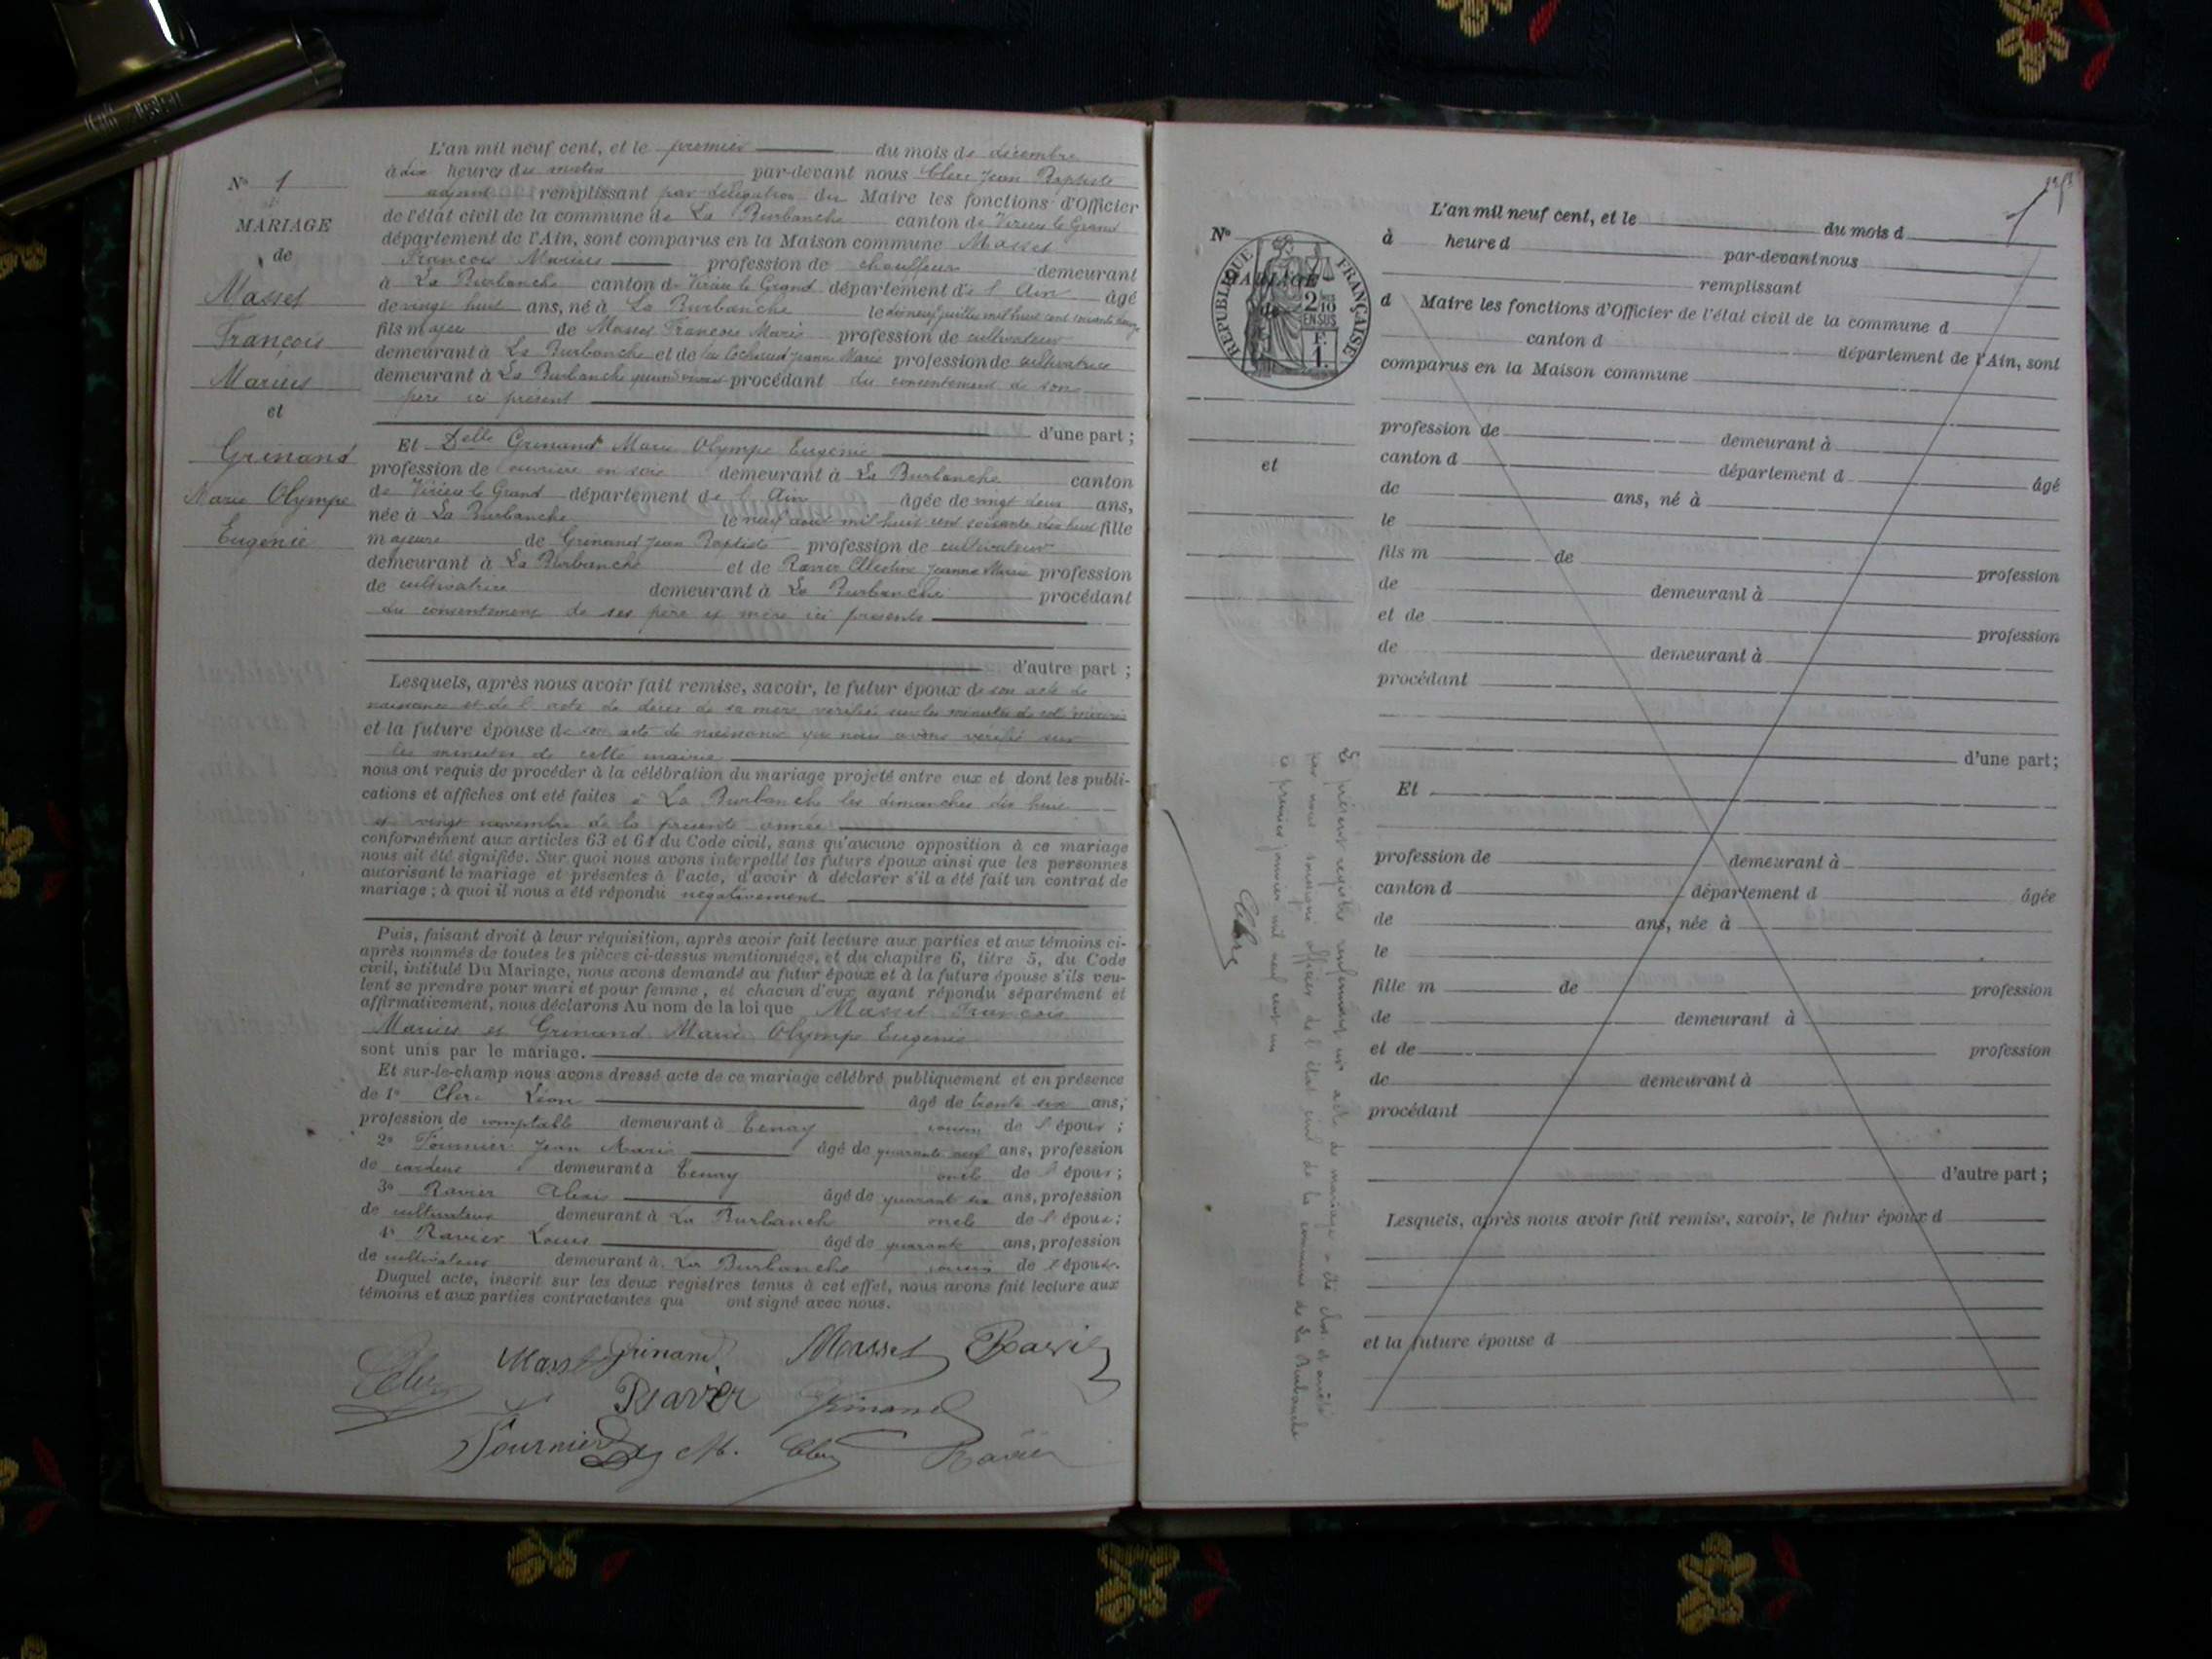 L'an mil neuf cent, et le premier du mois de décembre
à dix heures du matin par-devant nous Clerc Jean Baptiste
adjoint remplissant par délégation du Maire les fonctions d'Officier
de l'état civil de la commune de La Burbanche canton de Virieu le Grand
département de l'Ain, sont comparus en la Maison commune Masset
François Marius profession de chauffeur demeurant
à La Burbanche canton de Virieu le Grand département de l'Ain âgé
de vingt huit ans, né à La Burbanche le dix neuf juillet mil huit cent soixante douze
fils majeur de Masset François Marie profession de cultivateur
demeurant à La Burbanche et de Jeanne Marie profession de cultivatrice
demeurant à La Burbanche procédant du consentement de son
père ici présent
d'une part ;
Et Delle Grinand Marie Olympe Eugénie
profession de ouvrière en soie demeurant à La Burbanche canton
de Virieu le Grand département de l'Ain âgée de vingt deux ans,
née à La Burbanche le neuf aout mil huit cent soixante dix huit fille
majeure de Grinand Jean Baptiste profession de cultivateur
demeurant à La Burbanche et de Ravier Célestine Jeanne Marie profession
de cultivatrice demeurant à La Burbanche procédant
du consentement de ses père et mère ici présents
d'autre part ;
Lesquels, après nous avoir fait remise, savoir, le futur époux de son acte de
naissance et de l'acte de décès de sa mère vérifiés sur les minutes de cette mairie
et la future épouse de son acte de naissance que nous avons vérifié sur
les minutes de cette mairie
nous ont requis de procéder à la célébration du mariage projeté entre eux et dont les publi-
cations et affiches ont été faites à La Burbanche les dimanches dix huit
et vingt novembre de la présente année
conformément aux articles 63 et 64 du Code civil, sans qu'aucune opposition à ce mariage
nous ait été signifiée. Sur quoi nous avons interpellé les futurs époux ainsi que les personnes
autorisant le mariage et présentes à l'acte, d'avoir à déclarer s'il a été fait un contrat de
mariage ; à quoi il nous a été répondu négativement
Puis, faisant droit à leur réquisition, après avoir fait lecture aux parties et aux témoins ci-
après nommés de toutes les pièces ci-dessus mentionnées, et du chapitre 6, titre 5, du Code
civil, intitulé Du Mariage, nous avons demandé au futur époux et à la future épouse s'ils veu-
lent se prendre pour mari et pour femme, et chacun d'eux ayant répondu séparément et
affirmativement, nous déclarons Au nom de la loi que Masset François
Marius et Grinand Marie Olympe Eugénie
sont unis par le mariage.
Et sur-le-champ nous avons dressé acte de ce mariage célébré publiquement et en présence
de 1° Clerc Léon âgé de trente six ans,
profession de comptable demeurant à Tenay cousin de l'époux ;
2° Fournier Jean Marie âgé de quarante neuf ans, profession
de cardeur demeurant à Tenay oncle de l'époux ;
3° Ravier Alexis âgé de quarante six ans, profession
de cultivateur demeurant à La Burbanche oncle de l'épouse ;
4° Ravier Louis âgé de quarante ans, profession
de cultivateur demeurant à La Burbanche cousin de l'épouse.
Duquel acte, inscrit sur les deux registres tenus à cet effet, nous avons fait lecture aux
témoins et aux parties contractantes qui ont signé avec nous.
Clerc Masset Grinand Masset Ravier
Ravier Grinand
Fournier J M. Clerc Ravier
N° 1
MARIAGE
de
Masset
François
Marius
et
Grinand
Marie Olympe
Eugénie
L'an mil neuf cent, et le du mois d
à heure d par-devant nous
remplissant
d Maire les fonctions d'Officier de l'état civil de la commune d
canton d département de l'Ain, sont
comparus en la Maison commune
profession de demeurant à
canton d département d âgé
de ans, né à
le
fils m de profession
de demeurant à
et de profession
de demeurant à
procédant
d'une part;
Et
profession de demeurant à
canton d département d âgée
de ans, née à
le
fille m de profession
de demeurant à
et de profession
de demeurant à
procédant
d'autre part ;
Lesquels, après nous avoir fait remise, savoir, le futur époux d
et la future épouse d
N°
MARIAGE
de
et
RÉPUBLIQUE FRANÇAISE
2/10
EN SUS
F.
1.
Le présent registre renfermant un acte de mariage a été clos et arrêté
par nous soussigné officier de l'état civil de la commune de La Burbanche
ce premier janvier mil neuf cent un
Clerc